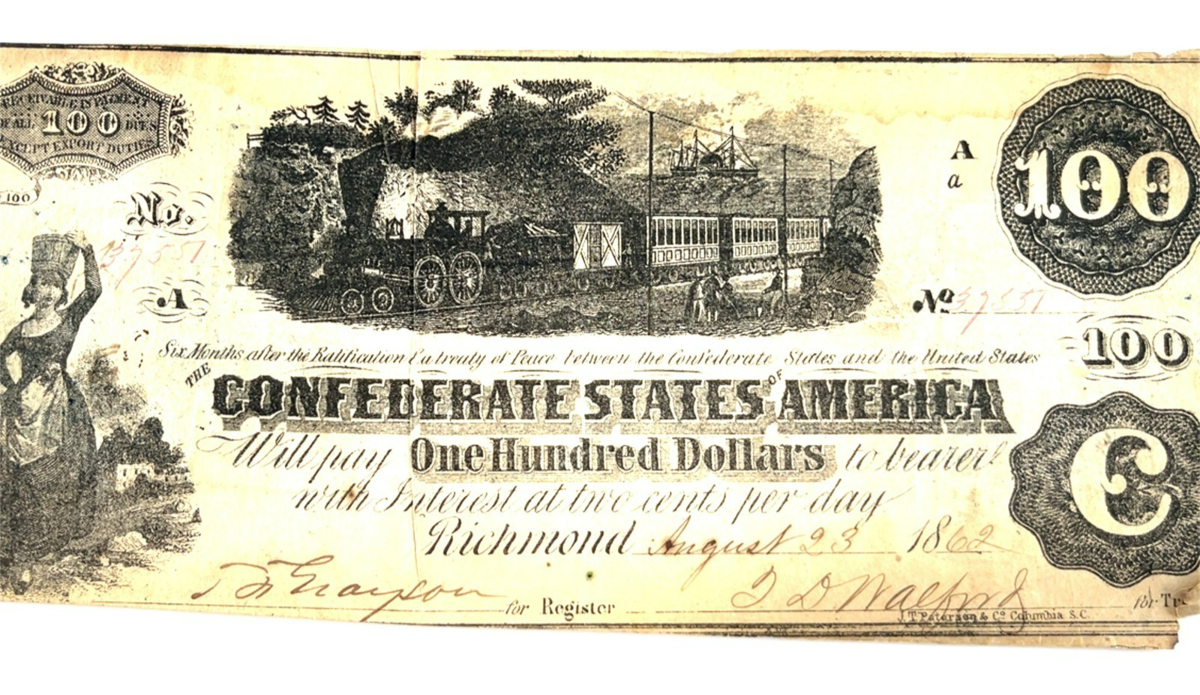 RECEIVABLE IN PAYMENT
OF ALL 100 DUES
EXCEPT EXPORT DUTIES
100
No.
37551
A
A
a
100
No 37551
100
Six Months after the Ratification of a treaty of Peace between the Confederate States and the United States
THE CONFEDERATE STATES OF AMERICA
Will pay One Hundred Dollars to bearer
with Interest at two cents per day
C
Richmond August 23 1862
for Register
for Tr
J. T. Paterson & Co Columbia S.C.